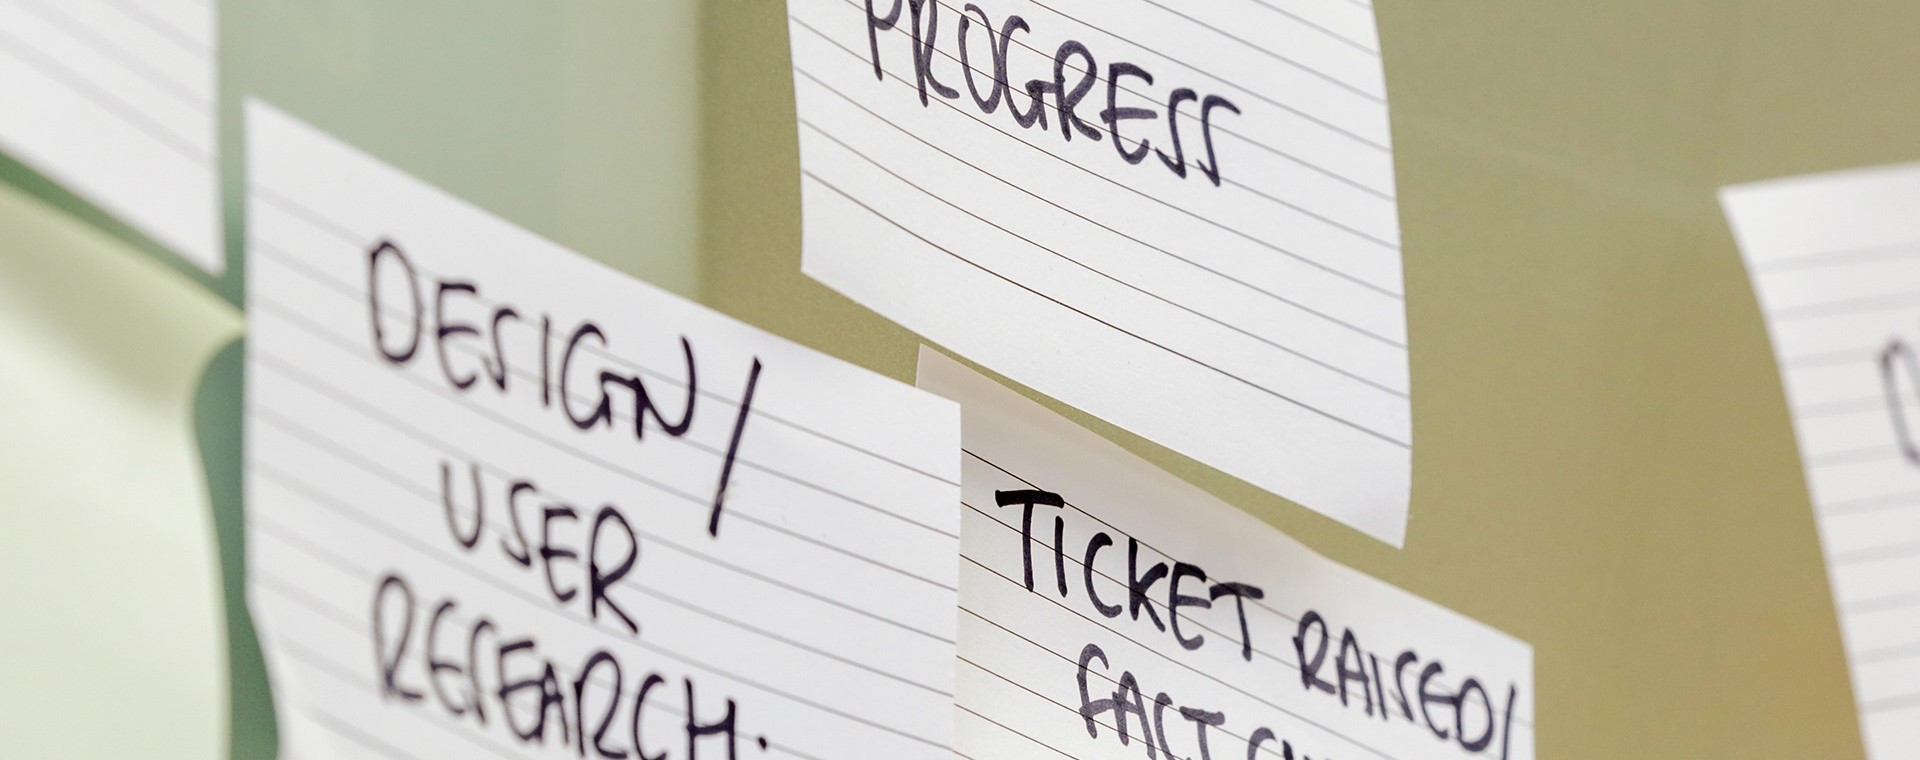 PROGRESS
DESIGN/
USER
RESEARCH.
TICKET RAISED/
FACT